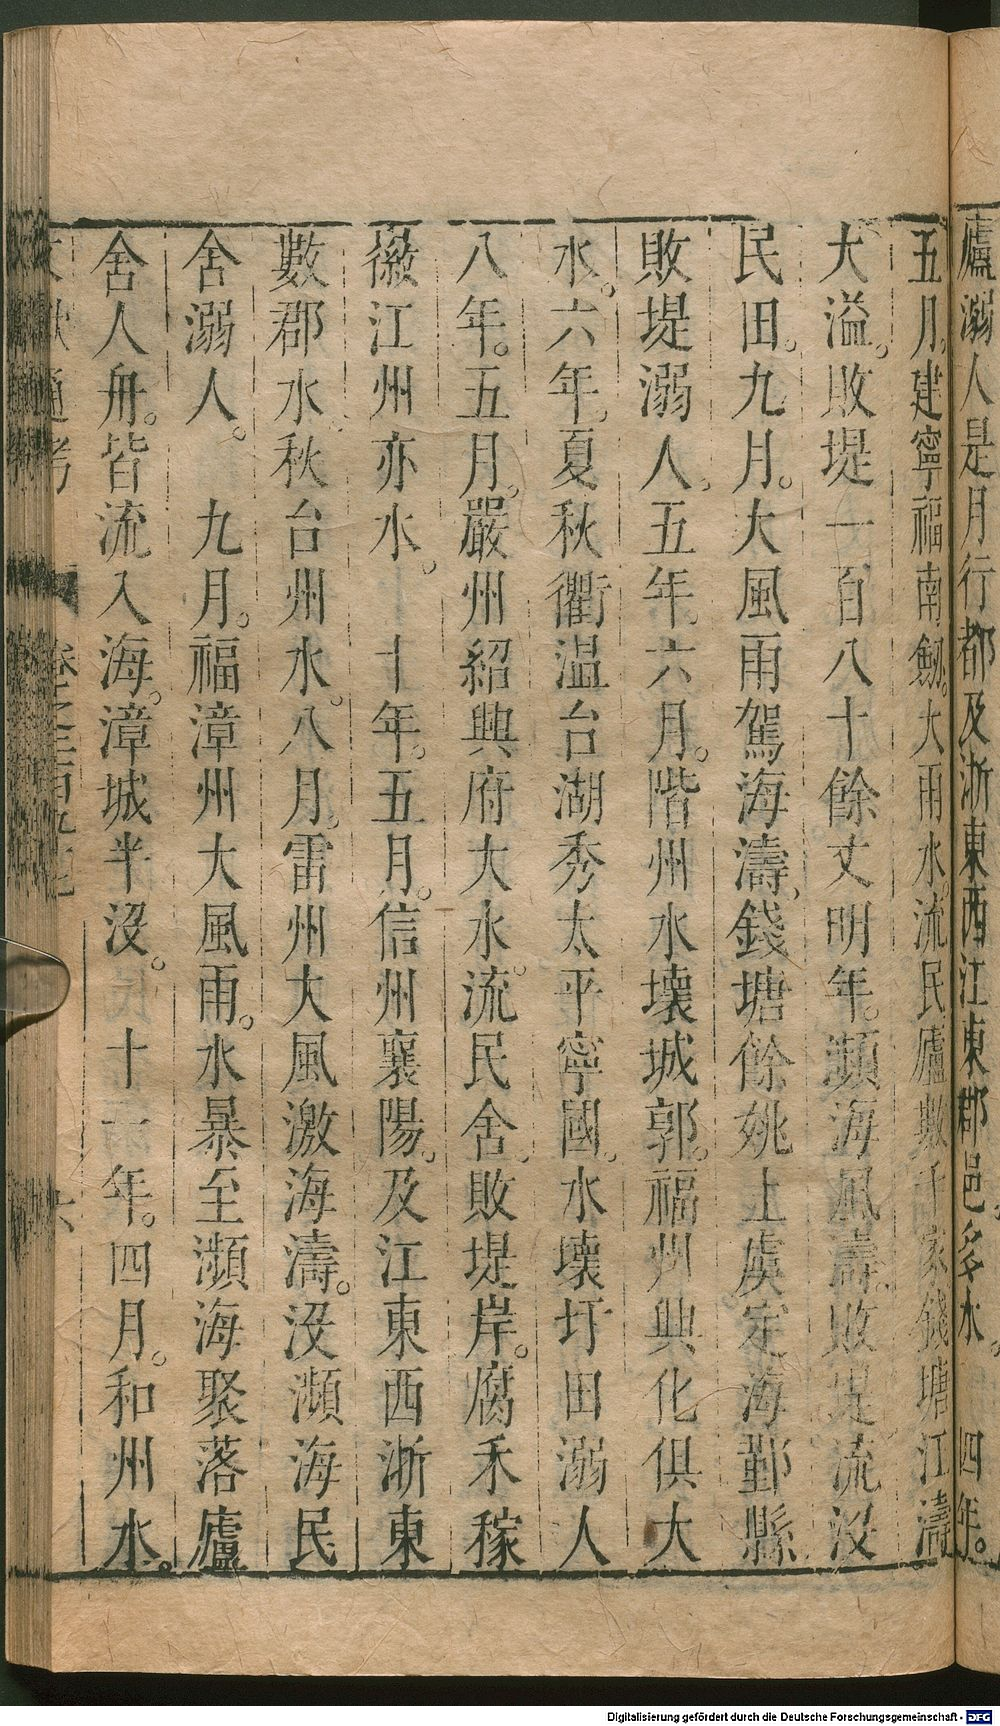 廬溺人是月行都及浙東西江東郡邑多水。四年。
五月。建寧福南劔。大雨水。流民廬數千家錢塘江濤
大溢。敗堤一百八十餘丈明年。瀕海風濤。敗堤流没
民田。九月。大風雨駕海濤，錢塘餘姚上虞定海鄞縣
敗堤溺人。五年。六月。階州水壞城郭。福州興化俱大
水。六年。夏秋衢温台湖秀太平寧國。水壞圩田溺人
八年。五月。嚴州紹興府大水。流民舍。敗堤岸。腐禾稼
徽江州亦水。十年。五月。信州襄陽。及江東西浙東
數郡水秋台州水。八月。雷州大風激海濤。没瀕海民
舍溺人。九月。福漳州大風雨。水暴至瀕海聚落廬
舍人舟。皆流入海。漳城半没。十一年。四月。和州水。
通考
六
Digitalisierung gefördert durch die Deutsche Forschungsgemeinschaft - DFG